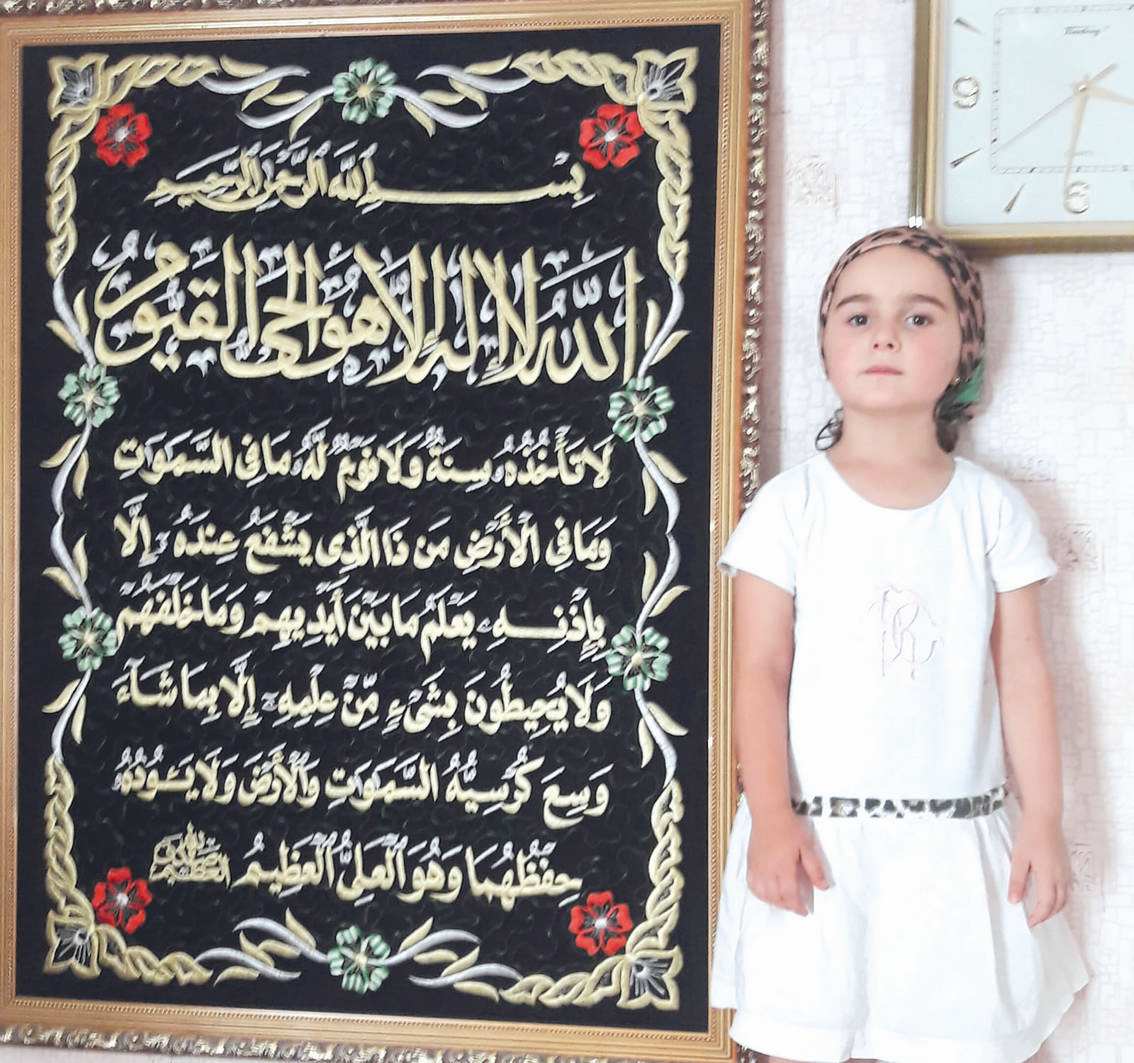 بِسْمِ اللَّهِ الرَّحْمَٰنِ الرَّحِيمِ
اللَّهُ لَا إِلَٰهَ إِلَّا هُوَ الْحَيُّ الْقَيُّومُ
لَا تَأْخُذُهُ سِنَةٌ وَلَا نَوْمٌ لَّهُ مَا فِي السَّمَٰوَٰتِ
وَمَا فِي الْأَرْضِ مَن ذَا الَّذِي يَشْفَعُ عِندَهُ إِلَّا
بِإِذْنِهِ يَعْلَمُ مَا بَيْنَ أَيْدِيهِمْ وَمَا خَلْفَهُمْ
وَلَا يُحِيطُونَ بِشَيْءٍ مِّنْ عِلْمِهِ إِلَّا بِمَا شَاءَ
وَسِعَ كُرْسِيُّهُ السَّمَٰوَٰتِ وَالْأَرْضَ وَلَا يَئُودُهُ
حِفْظُهُمَا وَهُوَ الْعَلِيُّ الْعَظِيمُ
9
6